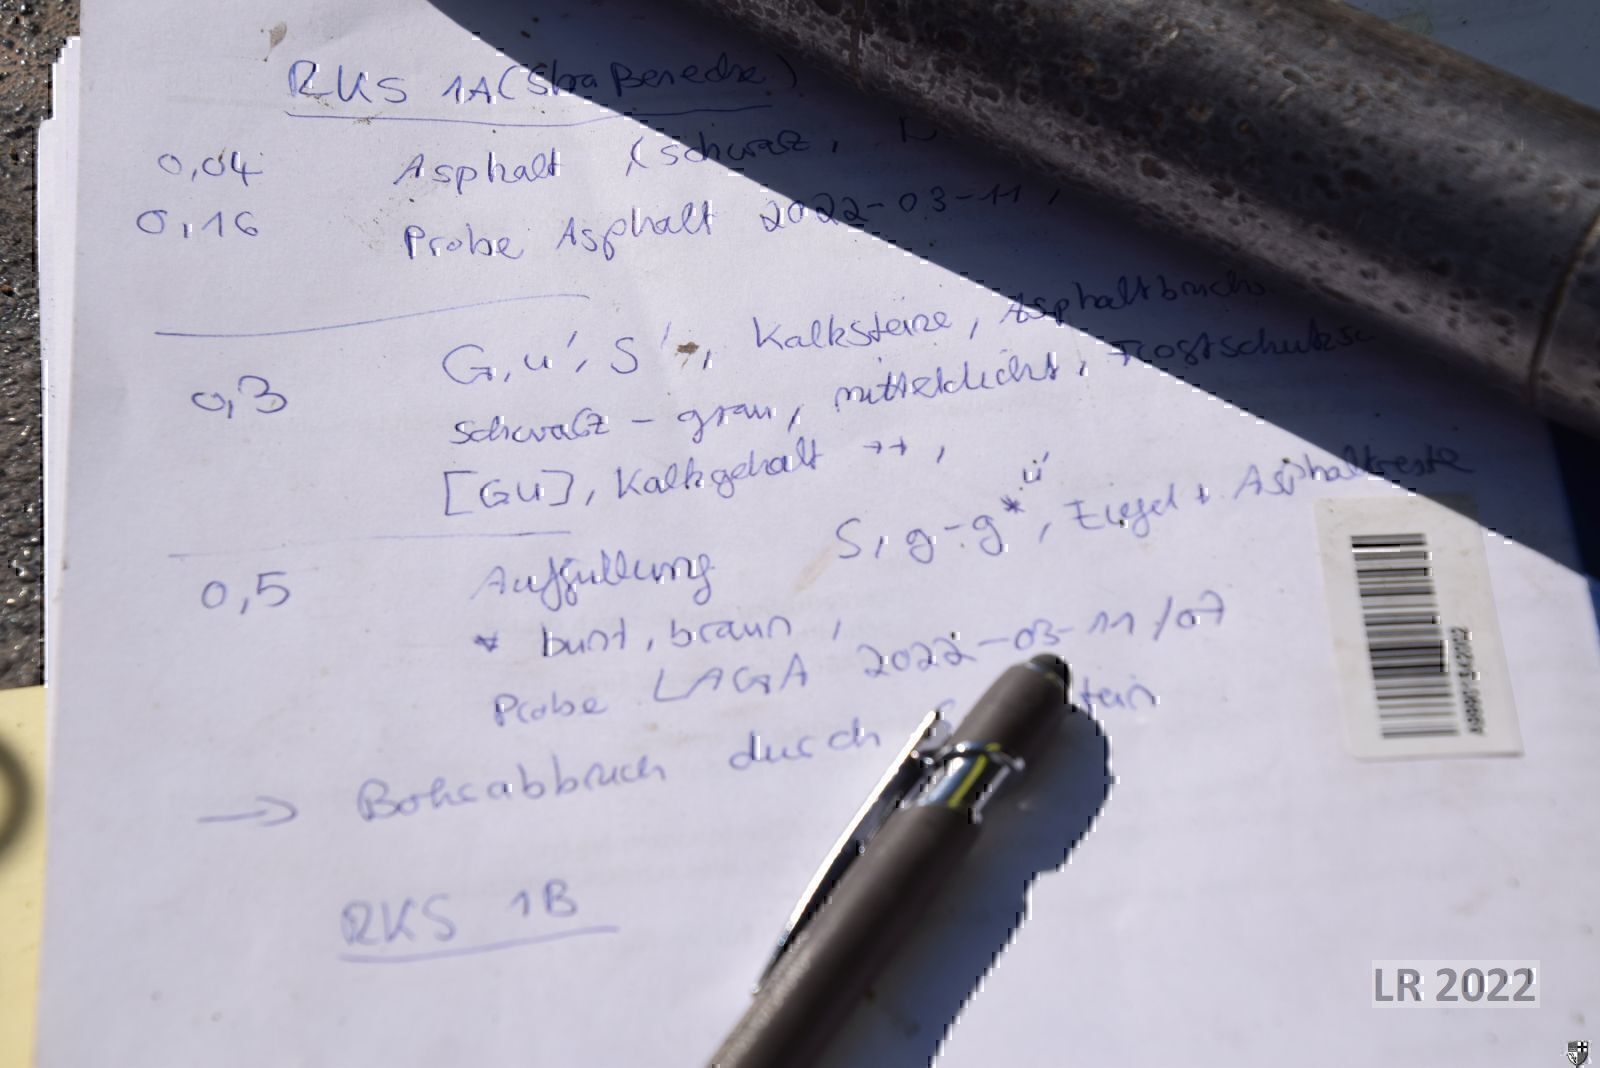 RKS 1A (Straßenecke)
0,04 Asphalt (schwarz,
0,16 Probe Asphalt 2022-03-11,
G, u', s', Kalksteine, Asphaltbruch
0,3 schwarz-grau, mitteldicht, Frostschutzsc
[GU], Kalkgehalt ++,
u'
0,5 Auffüllung S, g-g*, Ziegel + Asphaltreste
* bunt, braun,
Probe LAGA 2022-03-11/07
→ Bohrabbruch durch
RKS 1B
LR 2022